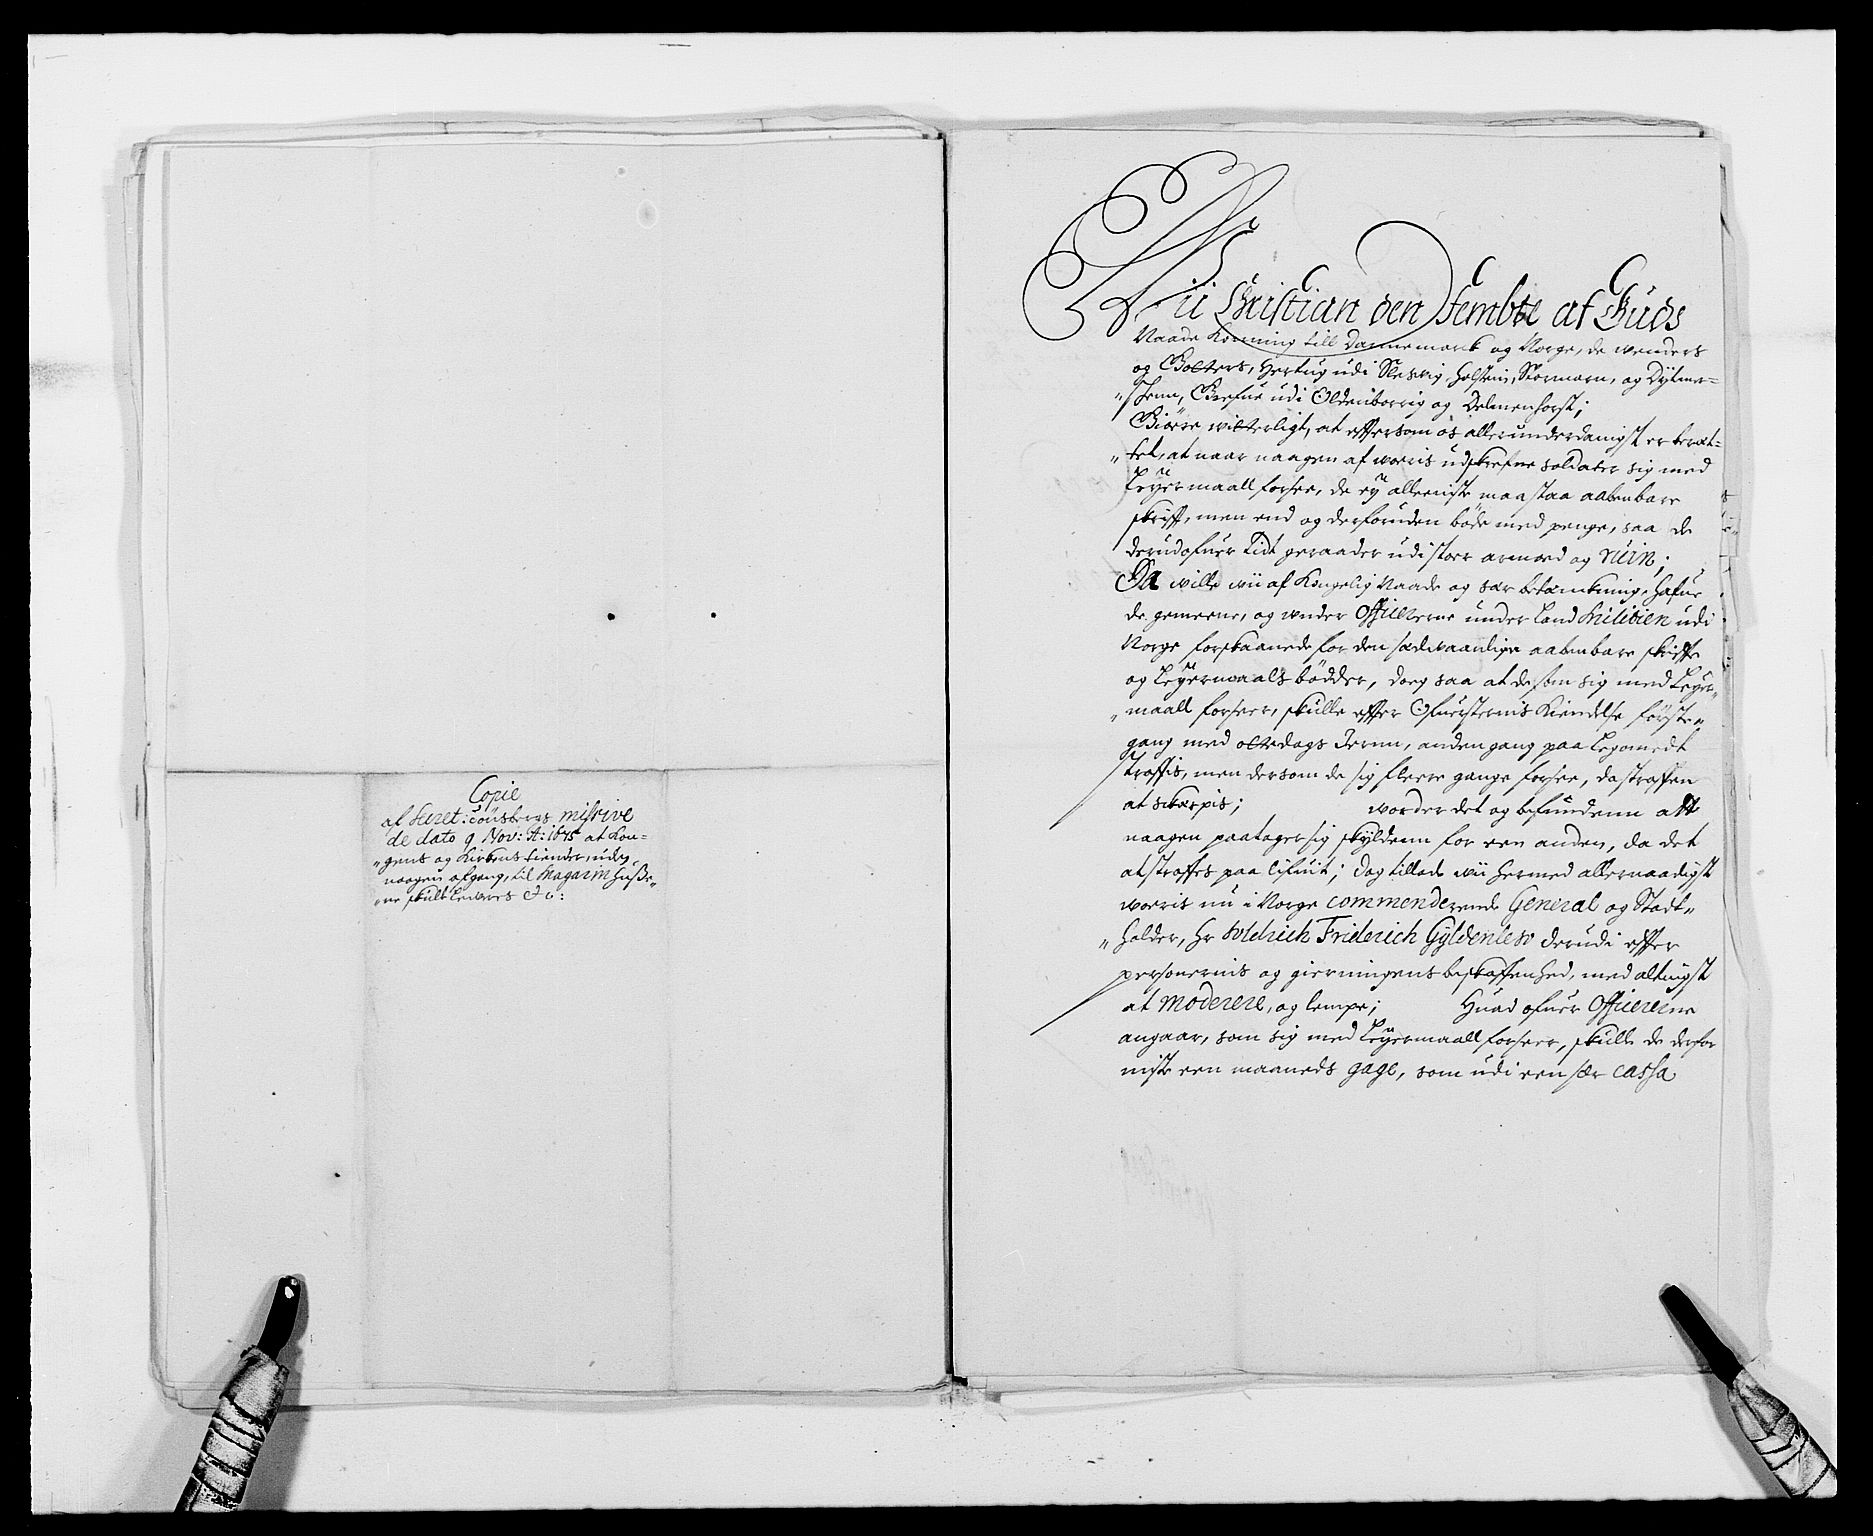 Copie
af Secret: Tönsbergs missive
de dato 9 Nov: A: 1675 at Kon-
"gens og Kirkens tiender, uden
naagen afgang, til Magazin Huße-
"ne skulle leweres &c:
Wii Christian den Fembte af Guds
Naade Konning till Dannemark og Norge, de Wenders
og Gotters, Hertug udi Slesvig, Holsten, Stormarn, og Dytmer-
"schenn, Grefue udi Oldenborrig og Delmenhorst;
Giøre witterligt, at effersom os allerunderdanigst er beret-
"tet, at naar naagen af worris udskrefne soldater sig med
Leyermaall forsee, de ey alleeniste maa staa aabenbare
skrifft, men end og derforuden böde med penge, saa de
derudofuer tidt geraader udi stoer armod og ruin;
Da wille wii af Kongelig Naade og sær betænkning, hafue
de gemeene, og under Officererne under Land Militien udi
Norge forskaanede for den sædwaanlige aabenbare skriffte
og Leyermaals bödder, doeg saa at de som sig med Leyer-
"maall forseer, skulle effter Ofuersternis Kiendelse første-
gang med otte dags Jernn, anden gang paa Legomedt
straffis, men dersom de sig fleere gange forsee, da straffen
at skerpis; worder det og befundenn att
naagen paatager sig skyldenn for een anden, da det
at straffes paa lifuit; Dog tillade wii hermed allernaadigst
worris nu i Norge commenderende General og Stadt-
"holder, Hr Woldrich Friderich Gyldenlew derudi effter
personernis og gierningens beskaffenhed, med altingst
at moderere, og lempe; Huad ofuer Officererne
angaar, som sig med Leyermaall forseer, skulle de derfor
miste een maaneds gage, som udi een sær cassa